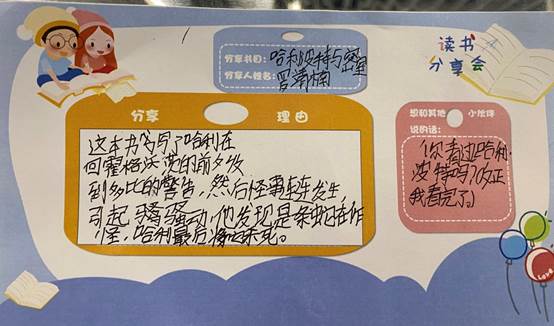 读书
分享会
分享书目:哈利波特与密室
分享人姓名:
分享 理由
这本书写了哈利在
回霍格沃茨的前夕收
到多比的警告,然后怪事连连发生,
引起骚动,他发现是条蛇在作
怪,哈利最后将它杀死。
想和其他小伙伴
说的话:
你看过哈利·
波特吗?反正
我看完了。
Love